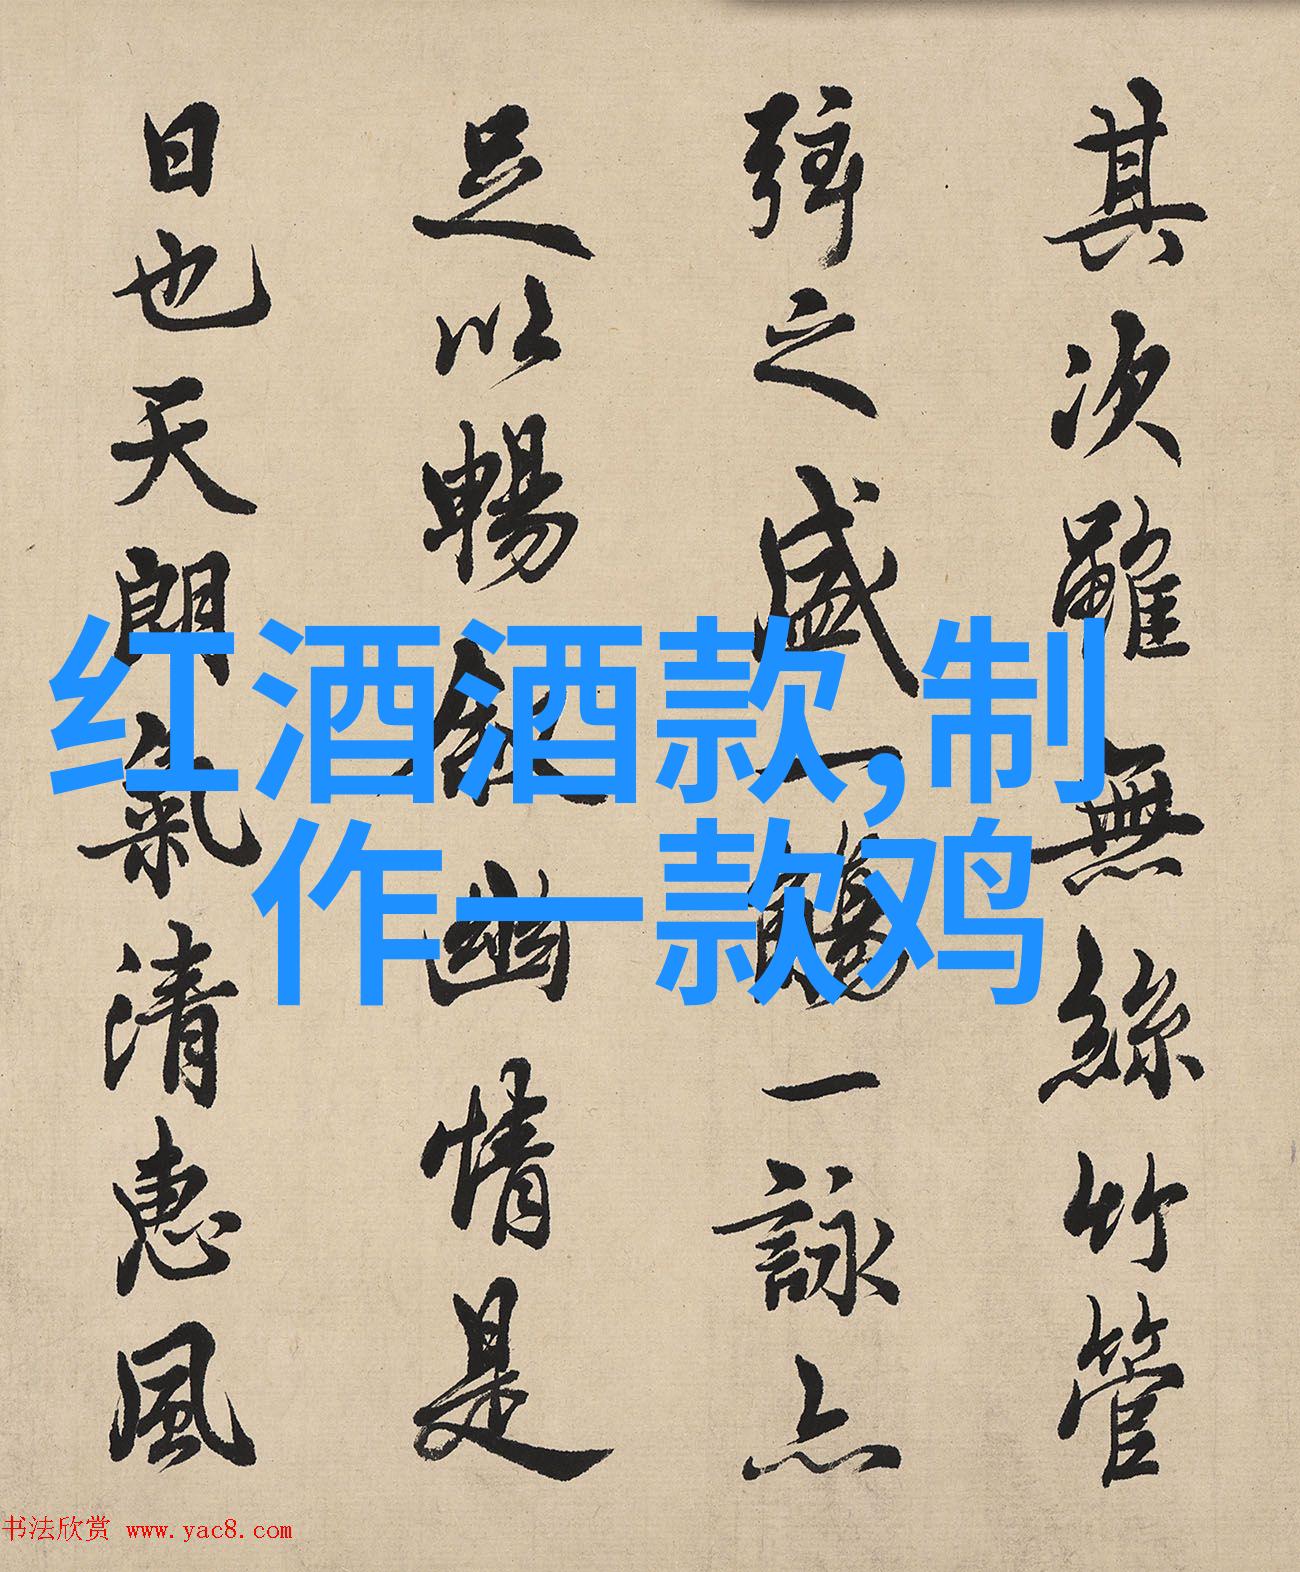 其次雖無絲竹管
弦之盛一觴一詠亦
足以暢敘幽情是
日也天朗氣清惠風
红酒酒款,制
作一款鸡
书法欣赏 www.yac8.com